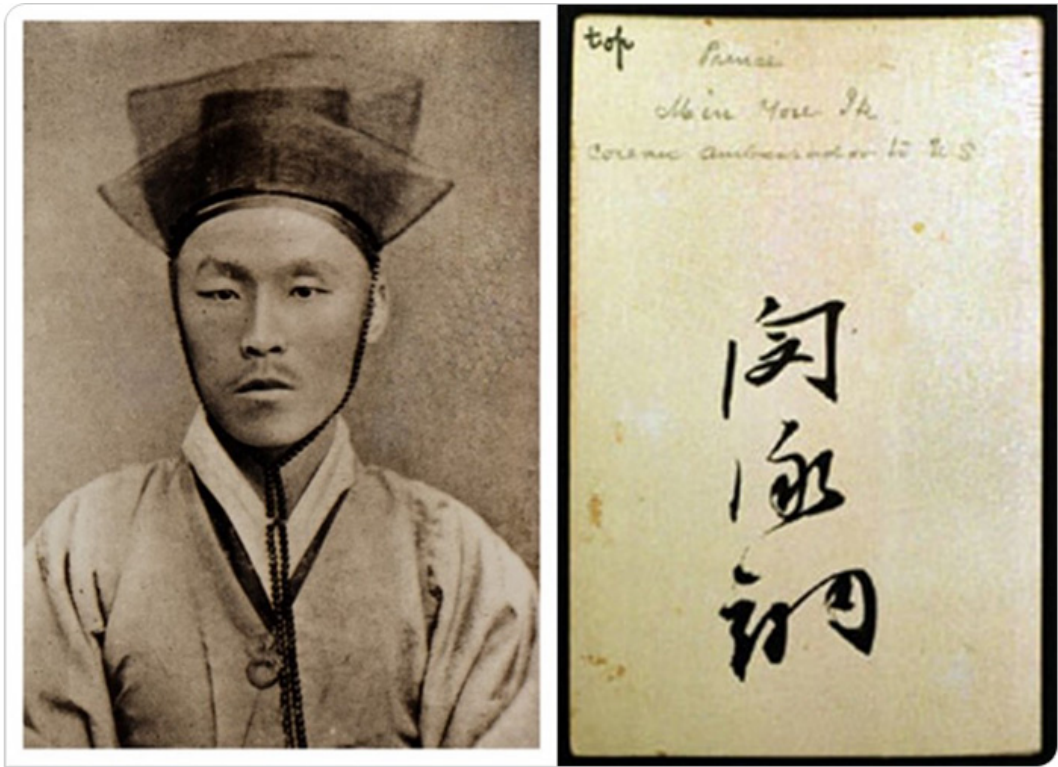 top
Prince
Min Ik
Corean ambassador to U S
閔
泳
翊